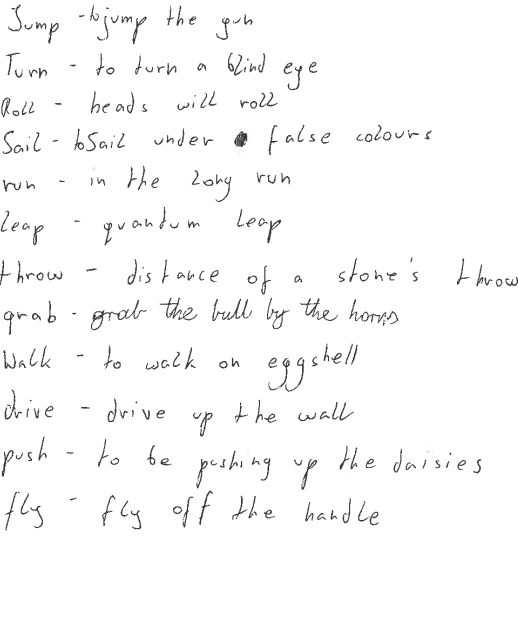 Jump - to jump the gun
Turn - to turn a blind eye
Roll - heads will roll
Sail - to Sail under false colours
run - in the long run
leap - quantum leap
throw - distance of a stone's throw
grab - grab the bull by the horns
Walk - to walk on eggshell
drive - drive up the wall
push - to be pushing up the daisies
fly - fly off the handle